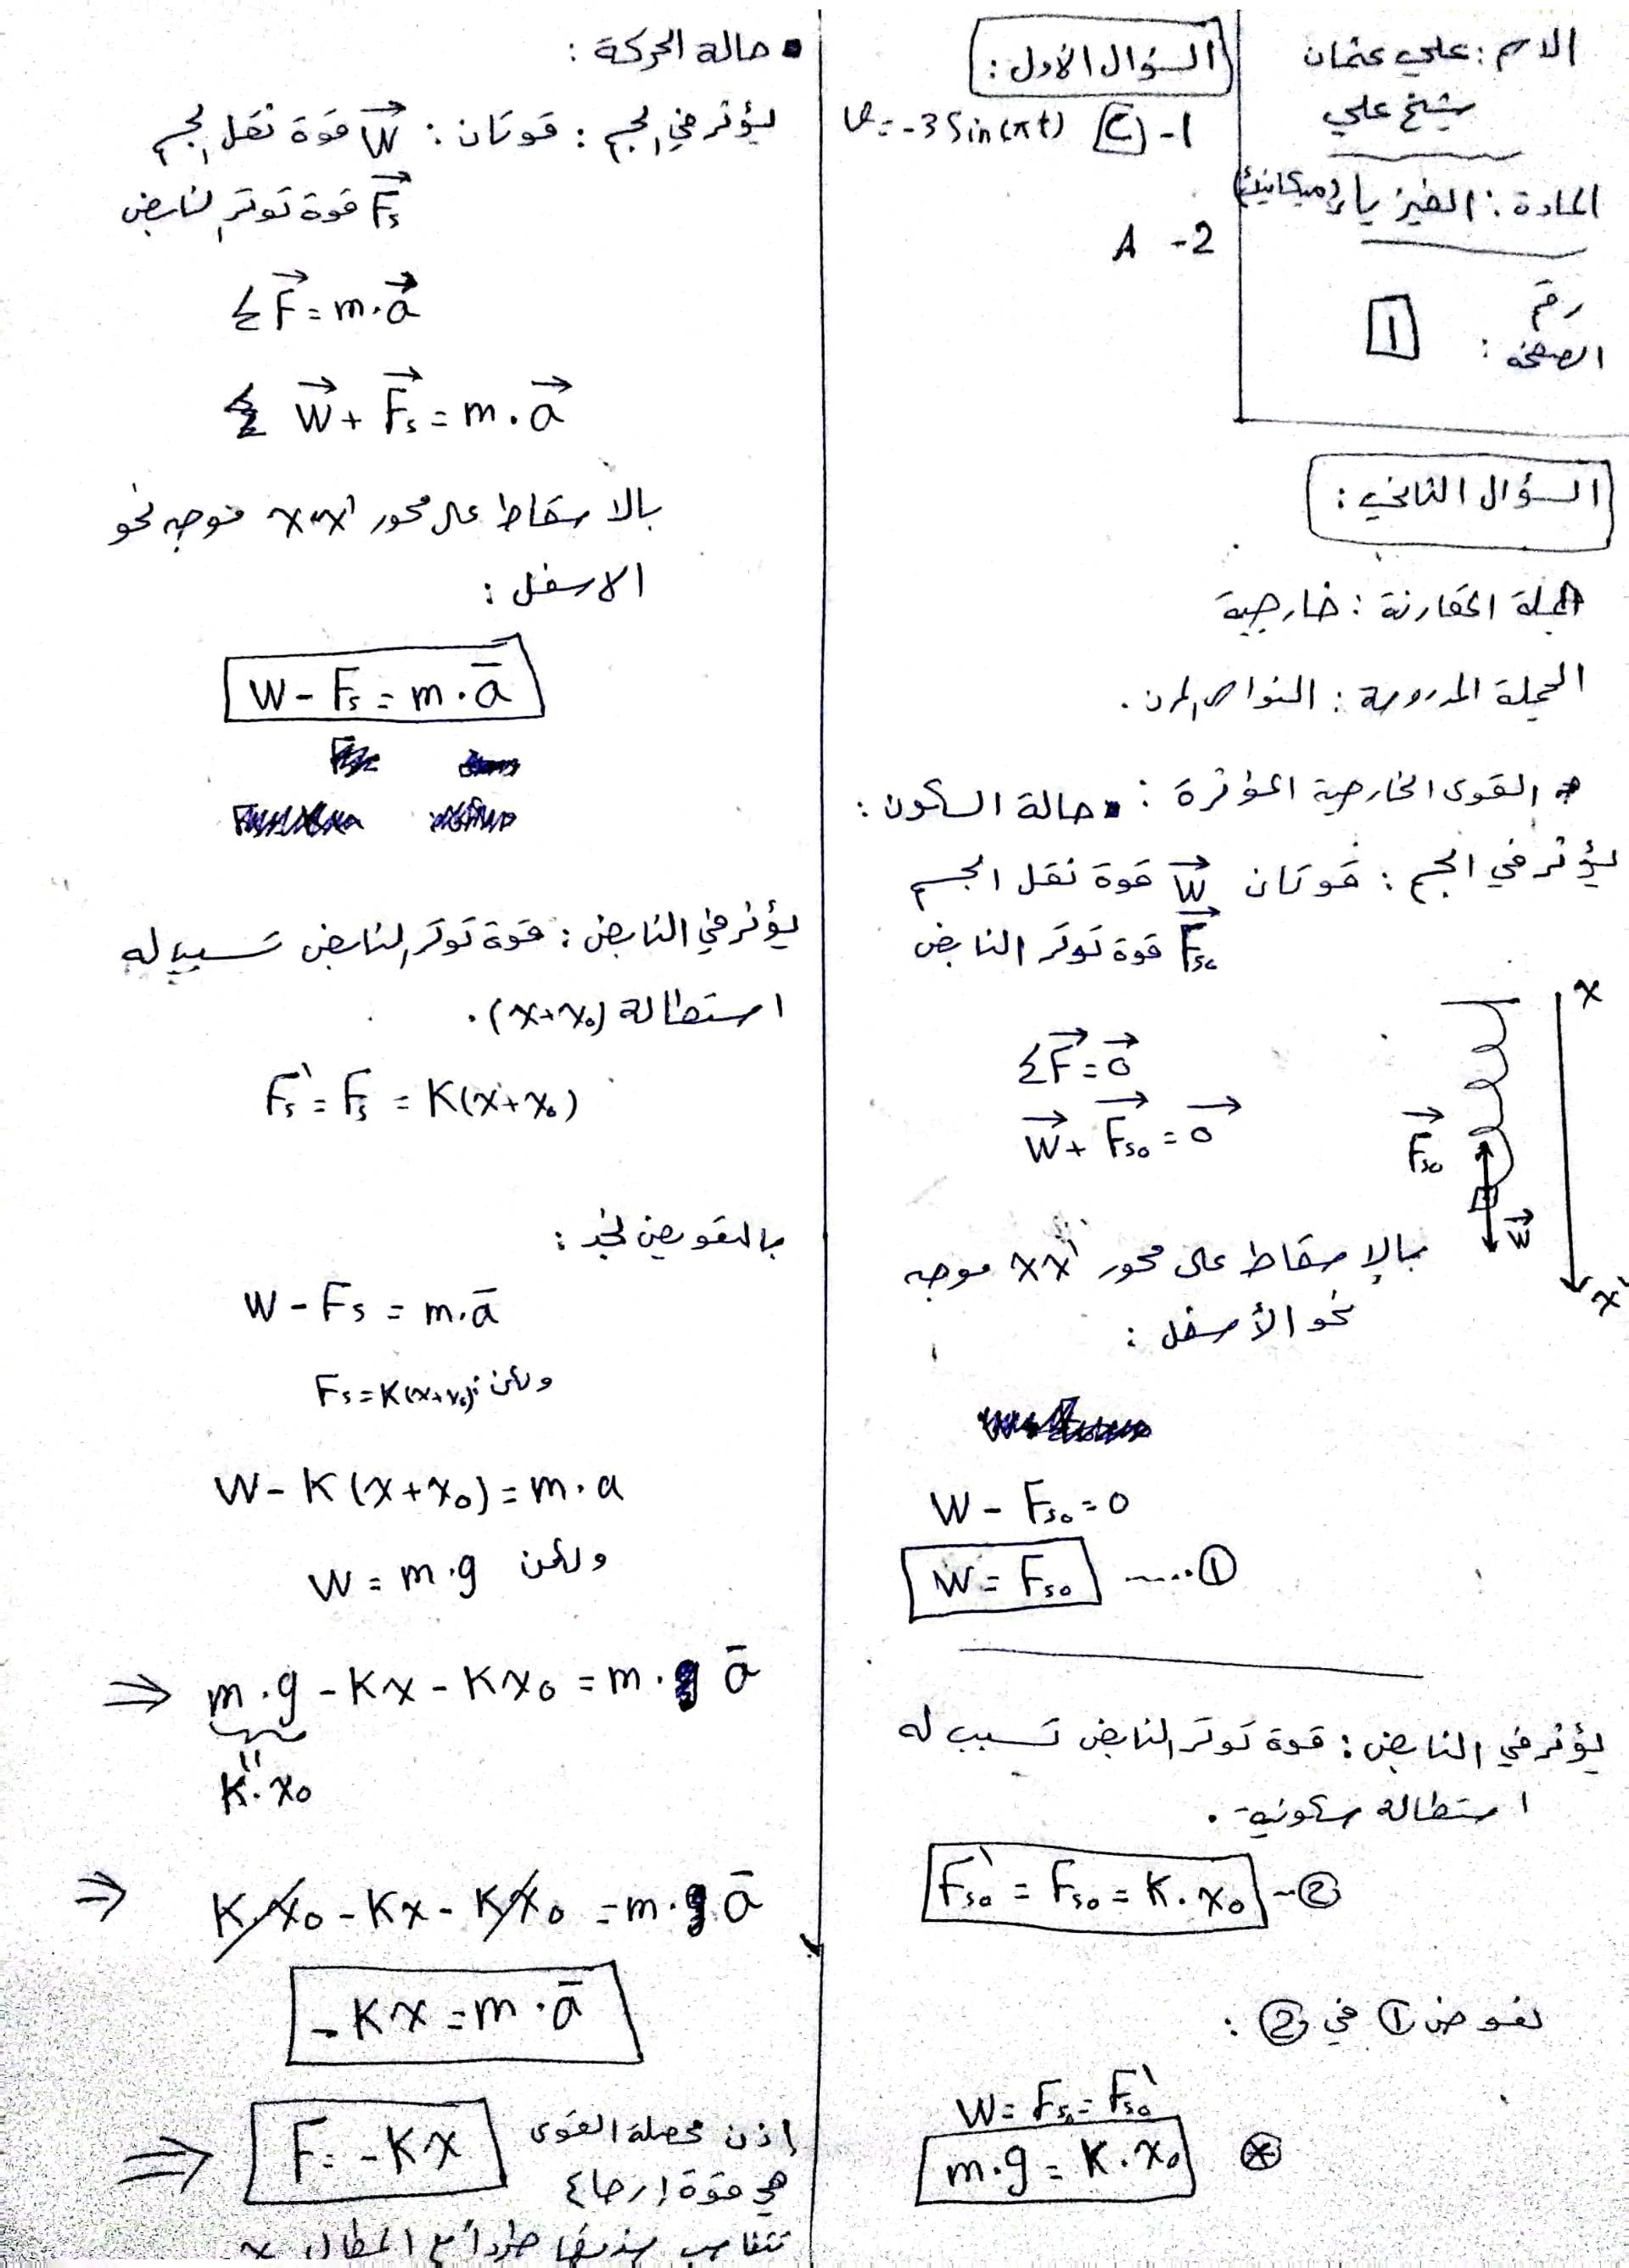 الاسم : علي عثمان
شيخ علي
المادة : الفيزياء (ميكانيك)
رقم
الصفحة : 1
السؤال الأول :
1- C v = -3 Sin(πt)
2- A
السؤال الثاني :
الجملة المقارنة : خارجية
الجملة المدروسة : النواس المرن .
* القوى الخارجية المؤثرة : • حالة السكون :
يؤثر في الجسم : قوتان W⃗ قوة ثقل الجسم
F⃗s₀ قوة توتر النابض
ΣF⃗ = 0⃗
W⃗ + F⃗s₀ = 0⃗
x
F⃗s₀
W⃗
x`
بالإسقاط على محور xx` موجه
نحو الأسفل :
W - Fs₀ = 0
W = Fs₀ ...... ①
يؤثر في النابض : قوة توتر النابض تسبب له
استطالة سكونية .
Fs₀` = Fs₀ = K . x₀ - ②
نعوض ① في ② :
W = Fs₀ = Fs₀`
m.g = K . x₀ ⊛
• حالة الحركة :
يؤثر في الجسم : قوتان : W⃗ قوة ثقل الجسم
F⃗s قوة توتر النابض
ΣF⃗ = m . a⃗
W⃗ + F⃗s = m . a⃗
بالاسقاط على محور xx` موجه نحو
الاسفل :
W - Fs = m . a̅
يؤثر في النابض : قوة توتر النابض تسبب له
استطالة (x+x₀) .
Fs` = Fs = K(x+x₀)
بالتعويض نجد :
W - Fs = m . a̅
ولكن : Fs = K(x+x₀)
W - K(x+x₀) = m . a
ولكن W = m . g
⇒ m . g - Kx - Kx₀ = m . a̅
"
K . x₀
⇒ Kx₀ - Kx - Kx₀ = m . a̅
- Kx = m . a̅
⇒ F = - Kx اذن محصلة القوى
هي قوة إرجاع
تتناسب شدتها طرداً مع المطال x